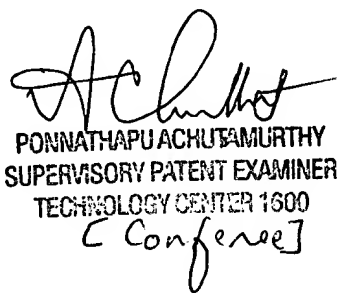 PONNATHAPU ACHUTAMURTHY
SUPERVISORY PATENT EXAMINER
TECHNOLOGY CENTER 1600
[Conferee]